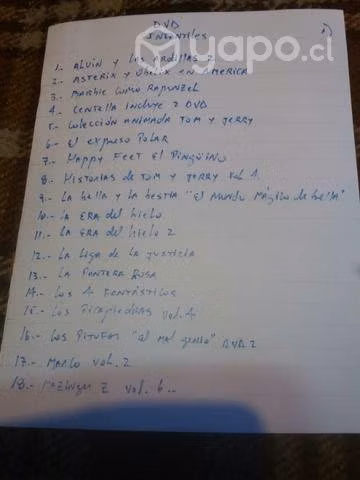 DVD
INFANTILES
yapo.cl
1.- ALVIN Y LAS ARDILLAS 2
2.- ASTERIX Y OBELIX EN AMERICA
3.- BARBIE COMO RAPUNZEL
4.- CENTELLA INCLUYE 2 DVD
5.- COLECCIÓN ANIMADA TOM Y JERRY
6.- El EXPRESO POLAR
7.- HAPPY FEET El PINGÜINO
8.- HISTORIAS de TOM y JERRY Vol 1.
9.- LA bella y LA bESTIA "El MUNDO MÁGICO de bella"
10.- LA ERA del hielo
11.- LA ERA del hielo 2
12.- LA LIGA de LA JUSTICIA
13.- LA PANTERA ROSA
14.- LOS 4 FANTÁSTICOS
15.- LOS PICAPIEDRAS Vol. 4
16.- LOS PITUFOS "al mal genio" DVD 2
17.- MARCO Vol. 2
18.- MAZINGER Z Vol. 6..